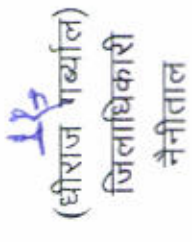 (धीराज गर्ब्याल)
जिलाधिकारी
नैनीताल